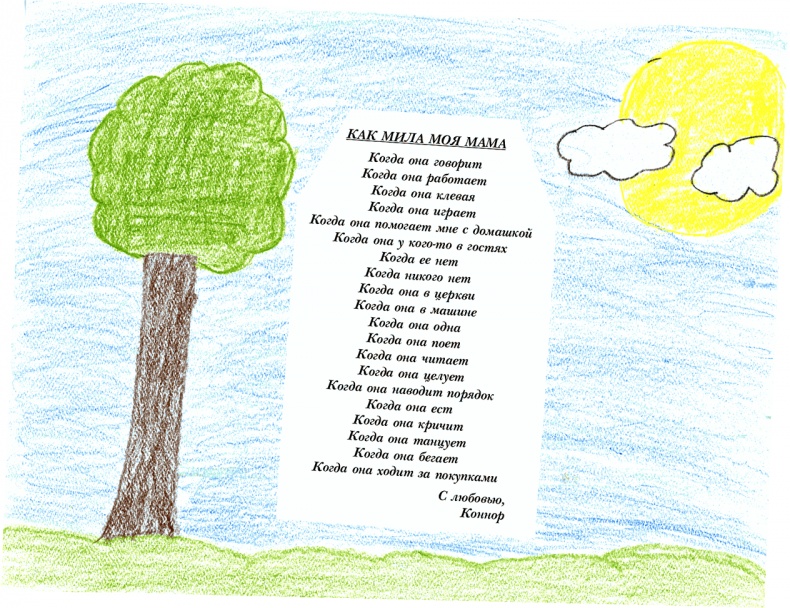 КАК МИЛА МОЯ МАМА
Когда она говорит
Когда она работает
Когда она клевая
Когда она играет
Когда она помогает мне с домашкой
Когда она у кого-то в гостях
Когда ее нет
Когда никого нет
Когда она в церкви
Когда она в машине
Когда она одна
Когда она поет
Когда она читает
Когда она целует
Когда она наводит порядок
Когда она ест
Когда она кричит
Когда она танцует
Когда она бегает
Когда она ходит за покупками
С любовью,
Коннор